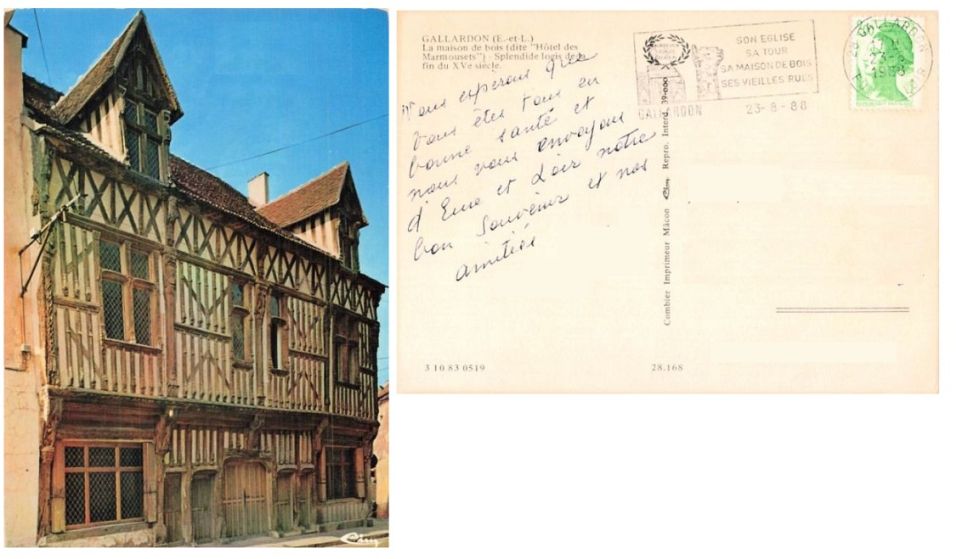 Cim
GALLARDON (E.-et-L.)
La maison de bois (dite "Hôtel des
Marmousets") - Splendide logis de la
fin du XVe siècle.
SON EGLISE
SA TOUR
SA MAISON DE BOIS
SES VIEILLES RUES
GALLARDON
23-8-88
GALLARDON
Nous espérons que
vous êtes tous en
bonne santé et
nous vous envoyons
d'Eure et Loir notre
bon souvenir et nos
amitiés
Combier Imprimeur Mâcon Cim Repro. Interd. 39-000
3 10 83 0519
28.168